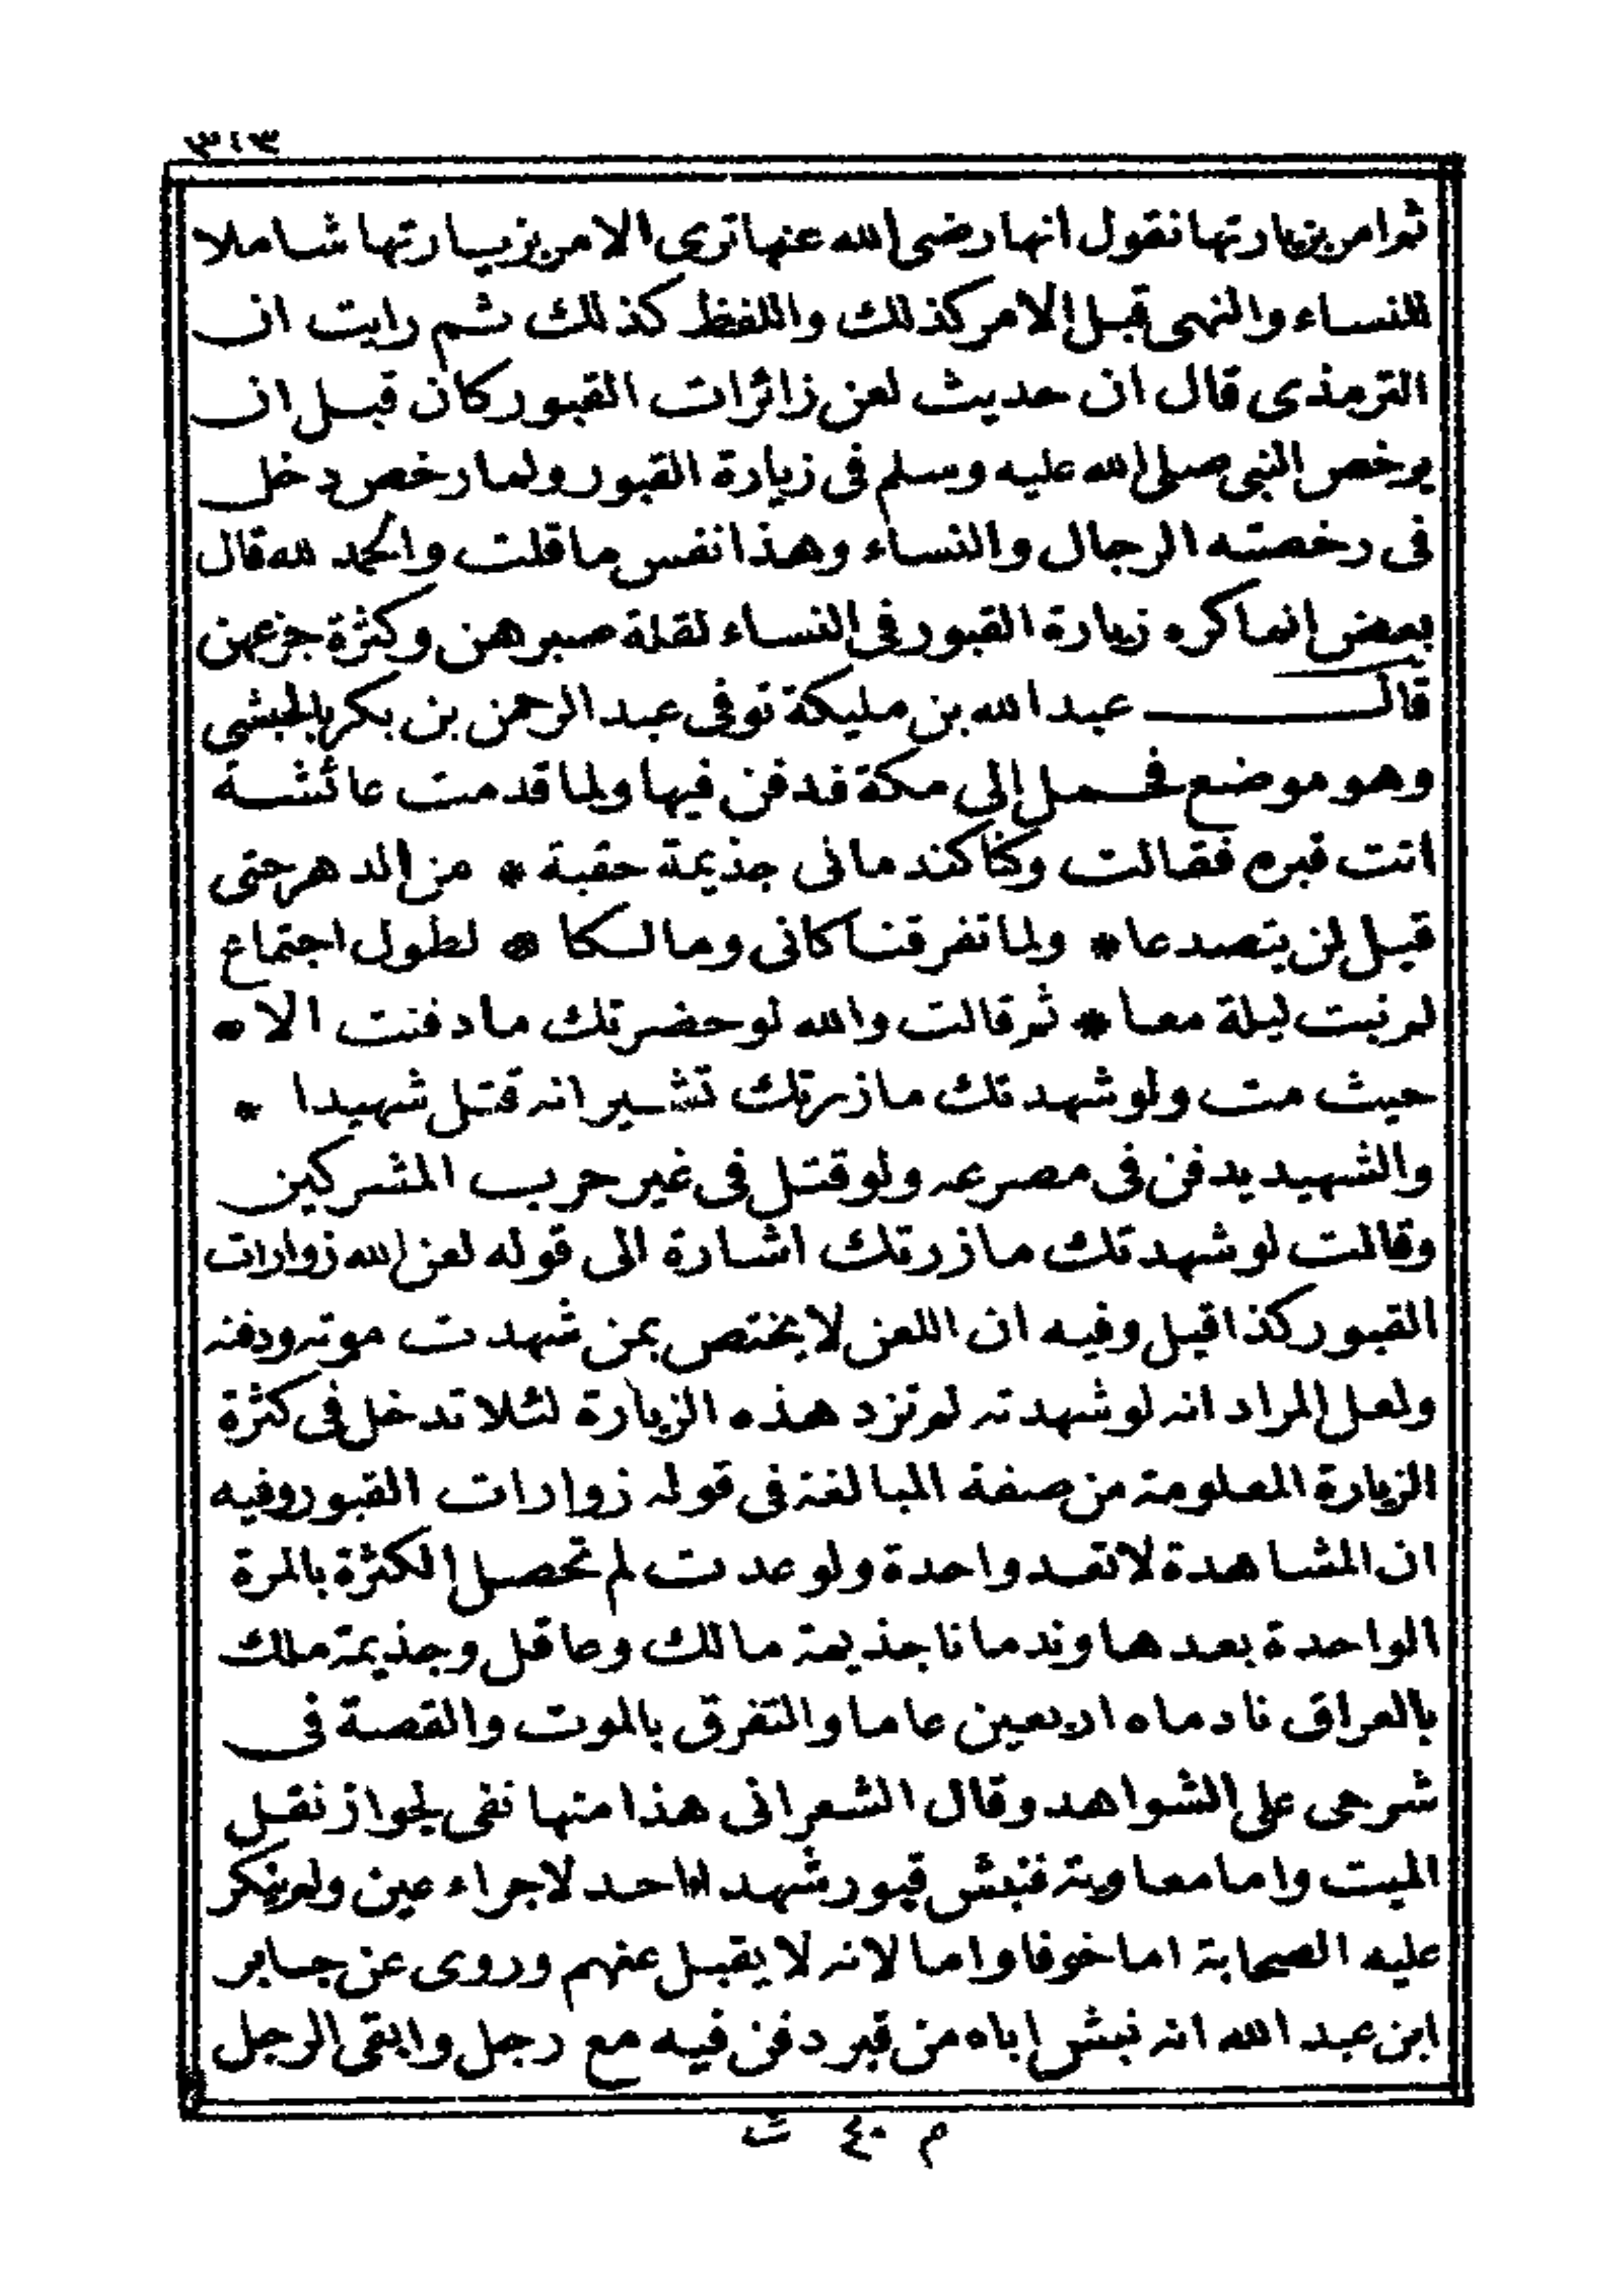 ٣١٣
ثم امر بزيارتها نقول انها رضى الله عنها ترى الامر بزيارتها شاملا
للنساء والنهى قبل الامر كذلك واللفظ كذلك ثم رايت ان
الترمذى قال ان حديث لعن زائرات القبور كان قبل ان
يرخص النبى صلى الله عليه وسلم فى زيارة القبور ولما رخص دخل
فى رخصته الرجال والنساء وهذا نفس ما قلت والحمد لله قال
بعض انما كره زيارة القبور فى النساء لقلة صبرهن وكثرة جزعهن
قال عبد الله بن مليكة توفى عبد الرحمن بن بكر بالحبشى
وهو موضع فحمل الى مكة فدفن فيها ولما قدمت عائشة
اتت قبره فقالت وكنا كندمانى جذيمة حقبة * من الدهر حتى
قيل لن يتصدعا * ولما تفرقنا كانى ومالكا * لطول اجتماع
لم نبت ليلة معا * ثم قالت والله لو حضرتك ما دفنت الا *
حيث مت ولو شهدتك ما زرتك تشير انه قتل شهيدا *
والشهيد يدفن فى مصرعه ولو قتل فى غير حرب المشركين
وقالت لو شهدتك ما زرتك اشارة الى قوله لعن الله زوارات
القبور كذا قيل وفيه ان اللعن لا يختص بمن شهدت موته ودفنه
ولعل المراد انه لو شهدته لم تزد هذه الزيارة لئلا تدخل فى كثرة
الزيارة المعلومة من صفة المبالغة فى قوله زوارات القبور وفيه
ان المشاهدة لا تعد واحدة ولو عدت لم تحصل الكثرة بالمرة
الواحدة بعدها وندمانا جذيمة مالك وعاقل وجذيمة ملك
بالعراق نادماه اربعين عاما والتفرق بالموت والقصة فى
شرحى على الشواهد وقال الشعرانى هذا منها نفى لجواز نقل
الميت واما معاوية فنبش قبور شهداء احد لاجراء عين ولم ينكر
عليه الصحابة اما خوفا واما لانه لا يقبل عنهم وروى عن جابر
ابن عبد الله انه نبش اباه من قبر دفن فيه مع رجل وابقى الرجل
م ٤٠ ث